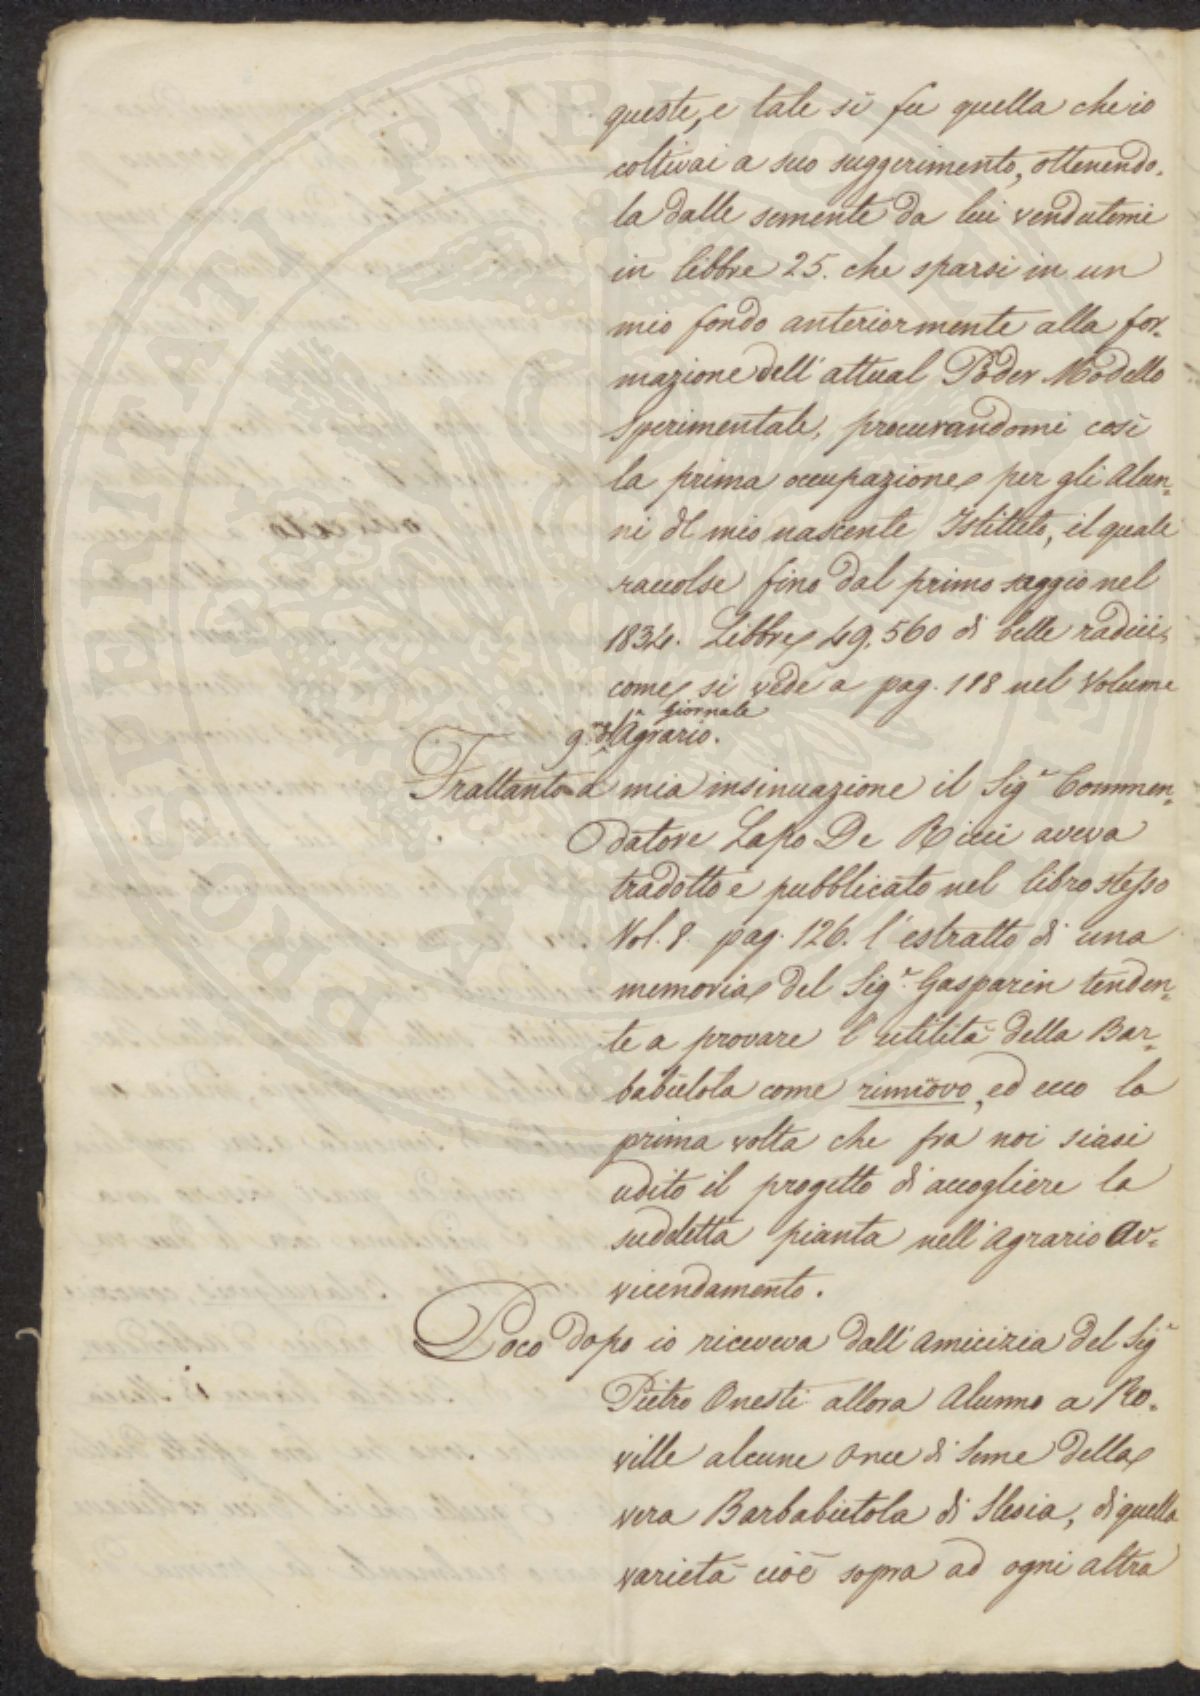 queste, e tale si fu quella che io
coltivai a suo suggerimento, ottenendo-
la dalle semente da lui vendutemi
in libbre 25. che sparsi in un
mio fondo anteriormente alla for-
mazione dell' attual Poder Modello
Sperimentale, procurandomi così
la prima occupazione per gli Alun-
ni del mio nascente Istituto, il quale
raccolse fino dal primo saggio nel
1834. Libbre 49,560 di belle radici,
come si vede a pag. 118 nel Volume
Giornale
9.° del Agrario.
Frattanto a mia insinuazione il Sig.r Commen-
datore Lapo De Ricci aveva
tradotto e pubblicato nel libro stesso
Vol. 8. pag. 126. l'estratto di una
memoria del Sig.r Gasparin tenden-
te a provare l'utilità della Bar-
babietola come rinnovo, ed ecco la
prima volta che fra noi siasi
udito il progetto di accogliere la
suddetta pianta nell' Agrario Av-
vicendamento.
Poco dopo io riceveva dall' Amicizia del Sig.r
Pietro Onesti allora Alunno a Ro-
ville alcune Once di Seme della
vera Barbabietola di Slesia, di quella
varietà cioè sopra ad ogni altra
PROSPERITATI PUBLICAE AUGENDAE